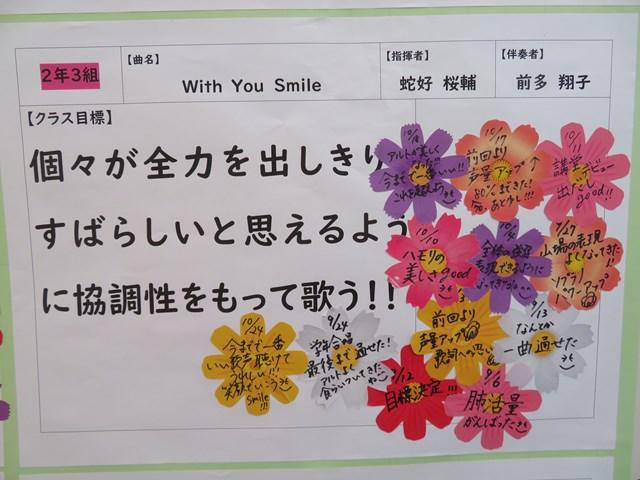 2年3組
【曲名】
With You Smile
【指揮者】
蛇好 桜輔
【伴奏者】
前多 翔子
【クラス目標】
個々が全力を出しきり
すばらしいと思えるよう
に協調性をもって歌う!!
10/18
アルトが美しく
今までで一番いい!!
10/17
前回より
声量アップ↑
80%まできた!
10/11
講堂デビュー
出だし
good!!
10/10
ハモリの
美しさgood
全体の強弱
表現できるように
なってきた
9/27
山場の表現
よくなってきた
ソプラノ
パワーアップ
前回より
声量アップ
歌詞への思い
9/13
なんとか
一曲通せた
10/24
今までで一番
いい歌声聴けて
うれしい!!!
笑顔でいこう
smile
!!!
9/24
学年合唱
最後まで通せた!
アルトよく
9/12
目標決定!!!
9/6
肺活量
がんばった